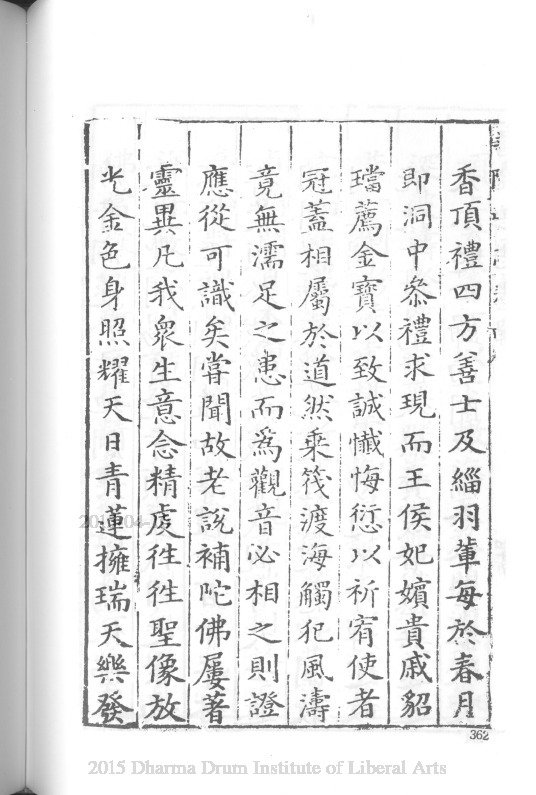 香頂禮四方善士及緇羽軰每於春月
即洞中叅禮求現而王侯妃嬪貴戚貂
璫薦金寶以致誠懴悔愆以祈宥使者
冠蓋相屬於道然乗筏渡海觸犯風濤
竟無濡足之患而為觀音必相之則證
應從可識矣甞聞故老說補陀佛屢著
靈異凡我衆生意念精虔徃徃聖像放
光金色身照耀天日青蓮擁瑞天樂發
362
2015 Dharma Drum Institute of Liberal Arts